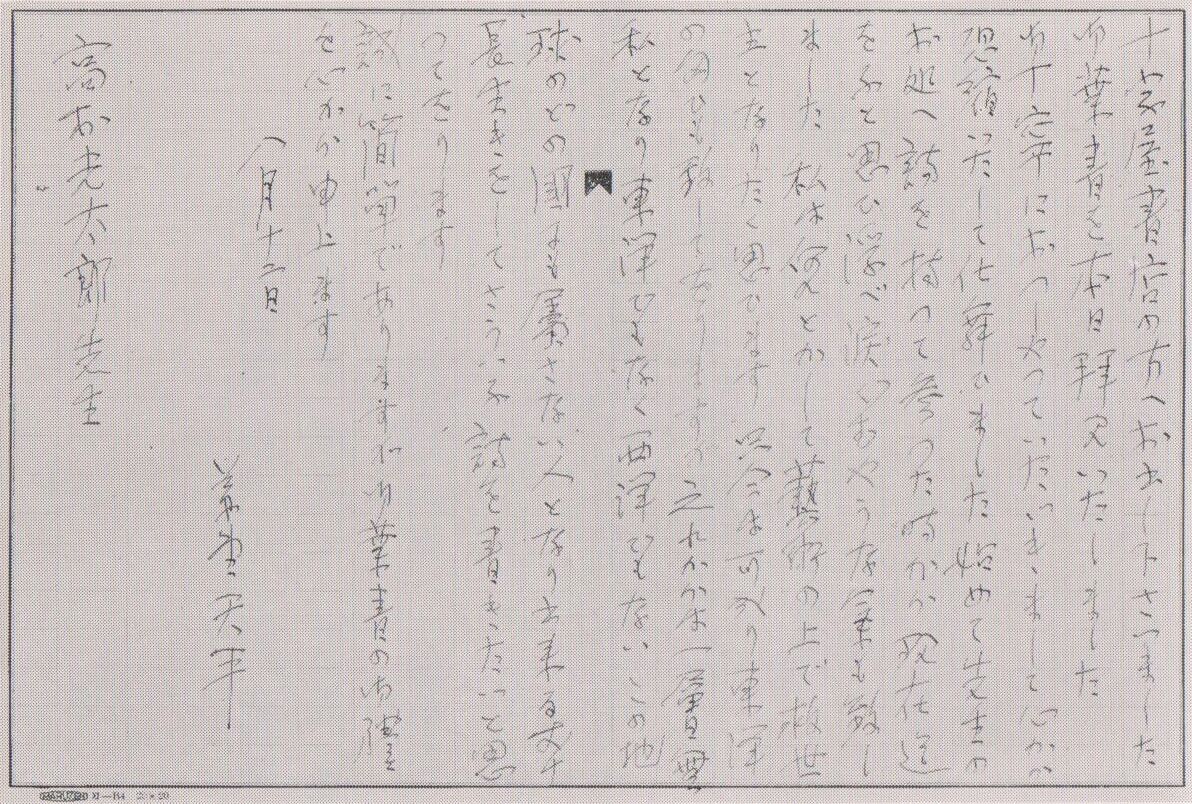 十字屋書店の方へお出し下さいました
御葉書を本日拝見いたしました
御丁寧におつしやつていただいきましていかが
恐縮いたして仕舞ひました 始めて先生の
お処へ詩を持つて参つた時から現在迄
をふと思ひ浮べ涙いむやうな気も致し
ました 私は何んとかして藝術の上で救世
主となりたく思ひます 只今は可成り東洋
の勉ひも致しておりますが これからは一層
私となり東洋でもなく西洋でもない この地
球のどの国にも属さない人となり出来る丈
長生きをしてさういふ詩を書きたいと思
つてをります
誠に簡単でありますが御葉書の御禮
をいかが申上ます
八月十二日
天平
高村光太郎先生
MARUZEN XI—B4 20×20